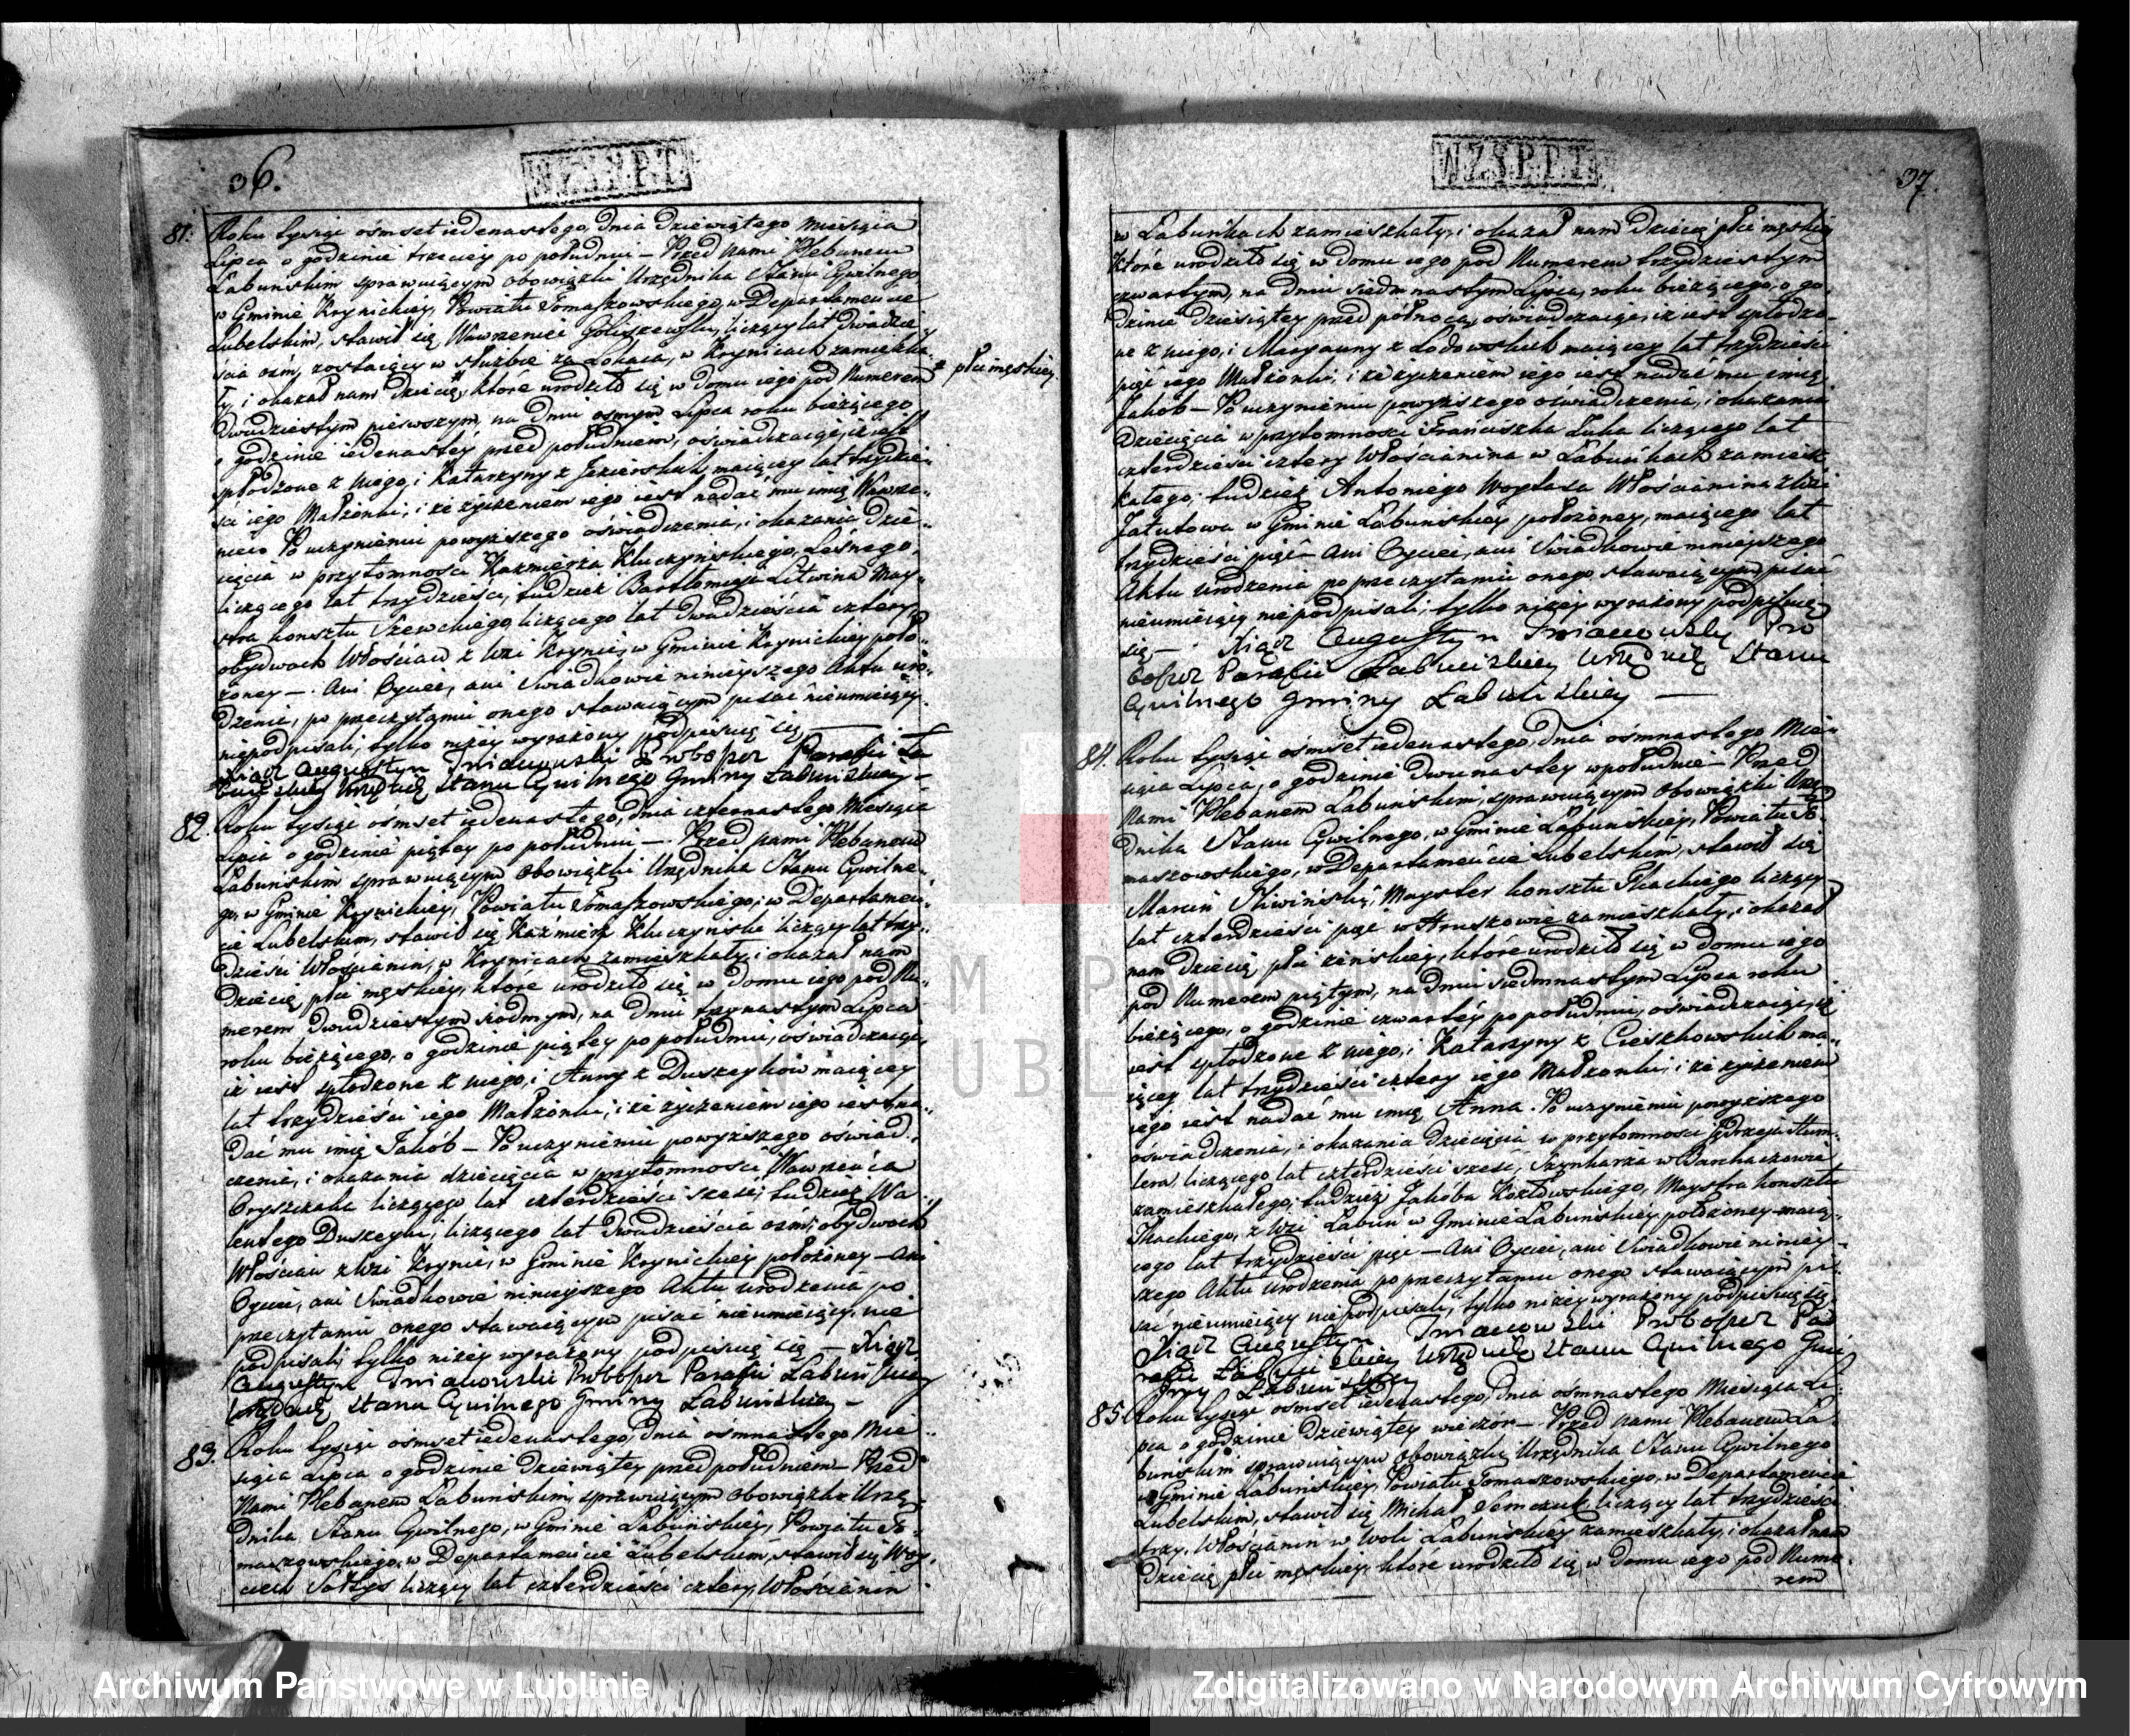 36.
WZSPPT
81. Roku tysiąc ośmset iedenastego, dnia dziewiątego miesiąca
Lipca o godzinie trzeciey po południu – Przed nami Plebanem
Łabuńskim sprawuiącym obowiązki Urzędnika Stanu Cywilnego
w Gminie Krynickiey, Powiatu Tomaszowskiego, w Departamencie
Lubelskim, stawił się Wawrzeniec liczący lat dwadzie„
ścia ośm, zostaiący w służbie za Lokaia, w Krynicach zamieszka„
ły, i okazał nam dziecię, które urodziło się w domu iego pod Numerem
płci męskiey
dwudziestym pierwszym, na dniu osmym Lipca roku bieżącego
o godzinie iedenastey przed południem, oświadczaiąc, iż iest
spłodzone z niego, i Katarzyny z Jezierskich, maiącey lat trzydzie„
ści iego Małżonki; i że życzeniem iego iest nadać mu imię Wawrze„
niec Po uczynieniu powyższego oświadczenia, i okazania dzie„
cięcia w przytomności Kazmierza Kluczyńskiego, Leśnego,
liczącego lat trzydzieści, tudzież Bartłomieja Litwina May„
stra konsztu Szewckiego liczącego lat dwadzieścia cztery,
obydwoch Włościan z wsi Krynic, w Gminie Krynickiey poło„
żoney –. Ani Oyciec, ani Swiadkowie ninieyszego Aktu uro„
dzenia, po przeczytaniu onego stawaiącym pisać nieumieiący
niepodpisali, tylko niżey wyrażony podpisuię się
Xiądz Augustyn Proboszcz Parafii Ła
buńskiey Urzędnik Stanu Cywilnego Gminy Łabuńskiey –
82. Roku tysiąc ośmset iedenastego, dnia czternastego Miesiąca
Lipca o godzinie piątey po południu –. Przed nami Plebanem
Łabuńskim sprawuiącym obowiązki Urzędnika Stanu Cywilne„
go, w Gminie Krynickiey, Powiatu Tomaszowskiego, w Departamen„
cie Lubelskim, stawił się Kaźmierz Kluczyński liczący lat trzy„
dzieści Włościanin, w Krynicach zamieszkały, i okazał nam
dziecię płci męskiey, które urodziło się w domu iego pod Nu„
merem dwudziestym siódmym, na dniu trzynastym Lipca
roku bieżącego, o godzinie piątey po południu, oświadczaiąc,
iż iest spłodzone z niego, i Anny z maiącey
lat trzydzieści iego Małżonki; i że życzeniem iego iest na„
dać mu imię Jakób – Po uczynieniu powyższego oświad„
czenia, i okazania dziecięcia w przytomności Wawrzeńca
liczącego lat czterdzieści sześć; tudzież Wa„
lentego liczącego lat dwadzieścia ośm; obydwoch
Włościan z wsi Krynic, w Gminie Krynickiey położoney – Ani
Oyciec, ani Swiadkowie ninieyszego Aktu urodzenia po
przeczytaniu onego stawaiącym pisać nieumieiący, nie
podpisali, tylko niżey wyrażony podpisuię się – Xiądz
Augustyn Proboszcz Parafii Łabuńskiey
Urzędnik Stanu Cywilnego Gminy Łabuńskiey –
83. Roku tysiąc ośmset iedenastego, dnia ośmnastego Mie„
siąca Lipca o godzinie dziewiątey przed południem – Przed
Nami Plebanem Łabuńskim, sprawuiącym obowiązki Urzę„
dnika Stanu Cywilnego, w Gminie Łabuńskiey, Powiatu To„
maszowskiego, w Departamencie Lubelskim, stawił się Woy„
ciech Sołtys liczący lat czterdzieści cztery, Włościanin
WZSPPT
37.
w Łabuńkach zamieszkały, i okazał nam dziecię płci męskiey
które urodziło się w domu iego pod Numerem trzydziestym
czwartym, na dniu siedmnastym Lipca, roku bieżącego, o go„
dzinie dziesiątey przed północą, oświadczaiąc, iż iest spłodzo„
ne z niego, i Maryanny z maiącey lat trzydzieści
pięć iego Małżonki; i że życzeniem iego iest nadać mu imię
Jakób – Po uczynieniu powyższego oświadczenia, i okazania
dziecięcia w przytomności Franciszka liczącego lat
czterdzieści cztery Włościanina w Łabuńkach zamiesz„
kałego; tudzież Antoniego Woytasa Włościanina z wsi
Jatutowa w Gminie Łabuńskiey położoney, maiącego lat
trzydzieści pięć – Ani Oyciec, ani Swiadkowie ninieyszego
Aktu urodzenia po przeczytaniu onego stawaiącym pisać
nieumieiący niepodpisali; tylko niżey wyrażony podpisuię
się – Xiądz Augustyn Pro
boszcz Parafii Łabuńskiey Urzędnik Stanu
Cywilnego Gminy Łabuńskiey –
84. Roku tysiąc ośmset iedenastego, dnia ośmnastego Mie„
siąca Lipca, o godzinie dwunastey w południe – Przed
Nami Plebanem Łabuńskim, sprawuiącym obowiązki Urzę„
dnika Stanu Cywilnego, w Gminie Łabuńskiey, Powiatu To„
maszowskiego, w Departamencie Lubelskim, stawił się
Marcin Mayster konsztu Tkackiego liczący
lat czterdzieści pięć w zamieszkały, i okazał
nam dziecię płci żeńskiey, które urodziło się w domu iego
pod Numerem piątym, na dniu siedmnastym Lipca roku
bieżącego, o godzinie czwartey po południu, oświadczaiąc, iż
iest spłodzone z niego, i Katarzyny z Cieszkowskich ma„
iącey lat trzydzieści cztery iego Małżonki; i że życzeniem
iego iest nadać mu imię Anna. Po uczynieniu powyższego
oświadczenia, i okazania dziecięcia w przytomności
liczącego lat czterdzieści sześć, Szynkarza w Barchaczowie
zamieszkałego; tudzież Jakóba Kozłowskiego, Maystra konsztu
Tkackiego, z wsi Łabuń w Gminie Łabuńskiey położoney maią„
cego lat trzydzieści pięć – Ani Oyciec, ani Swiadkowie niniey„
szego Aktu urodzenia po przeczytaniu onego stawaiącym pi„
sać nieumieiący niepodpisali, tylko niżey wyrażony podpisuię się.
Xiądz Augustyn Proboszcz Pa
rafii Łabuńskiey Urzędnik Stanu Cywilnego Gmi
ny Łabuńskiey
85. Roku tysiąc ośmset iedenastego, dnia ośmnastego Miesiąca Li„
pca o godzinie dziewiątey wieczór –. Przed nami Plebanem Ła„
buńskim sprawuiącym obowiązki Urzędnika Stanu Cywilnego
w Gminie Łabuńskiey, Powiatu Tomaszowskiego, w Departamencie
Lubelskim, stawił się Michał Semczuk liczący lat trzydzieści
trzy, Włościanin w Woli Łabuńskiey zamieszkały, i okazał nam
dziecię płci męskiey, które urodziło się w domu iego pod Nume„
rem
Archiwum Państwowe w Lublinie
Zdigitalizowano w Narodowym Archiwum Cyfrowym